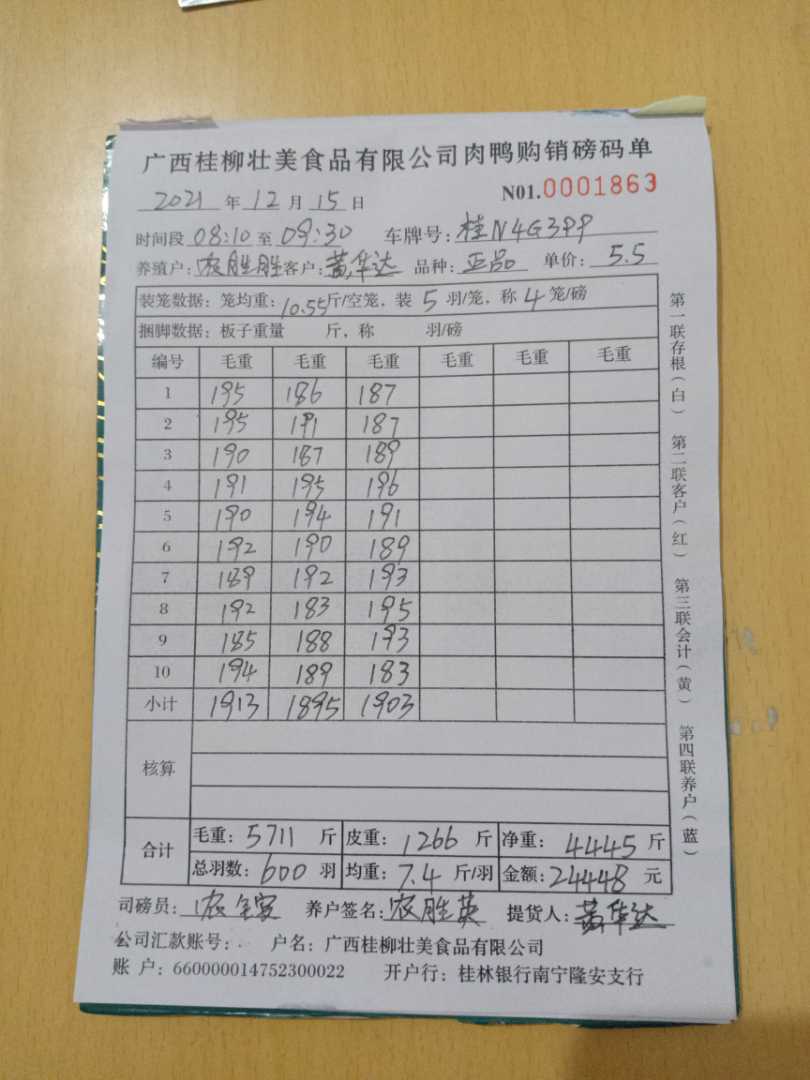 广西桂柳壮美食品有限公司肉鸭购销磅码单
2021 年 12 月 15 日 N01.0001863
时间段 08:10 至 09:30 车牌号: 桂N4G3PP
养殖户: 农胜胜 客户: 黄华达 品种: 正品 单价: 5.5
装笼数据: 笼均重: 10.55斤/空笼, 装 5 羽/笼, 称 4 笼/磅
捆脚数据: 板子重量 斤, 称 羽/磅
编号 毛重 毛重 毛重 毛重 毛重 毛重
1 195 186 187
2 195 191 187
3 190 187 189
4 191 195 196
5 190 194 191
6 192 190 189
7 189 192 193
8 192 183 195
9 185 188 193
10 194 189 183
小计 1913 1895 1903
核算
合计
毛重: 5711 斤 皮重: 1266 斤 净重: 4445 斤
总羽数: 600 羽 均重: 7.4 斤/羽 金额: 24448 元
司磅员: 农 养户签名: 农胜英 提货人: 黄华达
公司汇款账号: 户名: 广西桂柳壮美食品有限公司
账 户: 660000014752300022 开户行: 桂林银行南宁隆安支行
第一联存根(白) 第二联客户(红) 第三联会计(黄) 第四联养户(蓝)